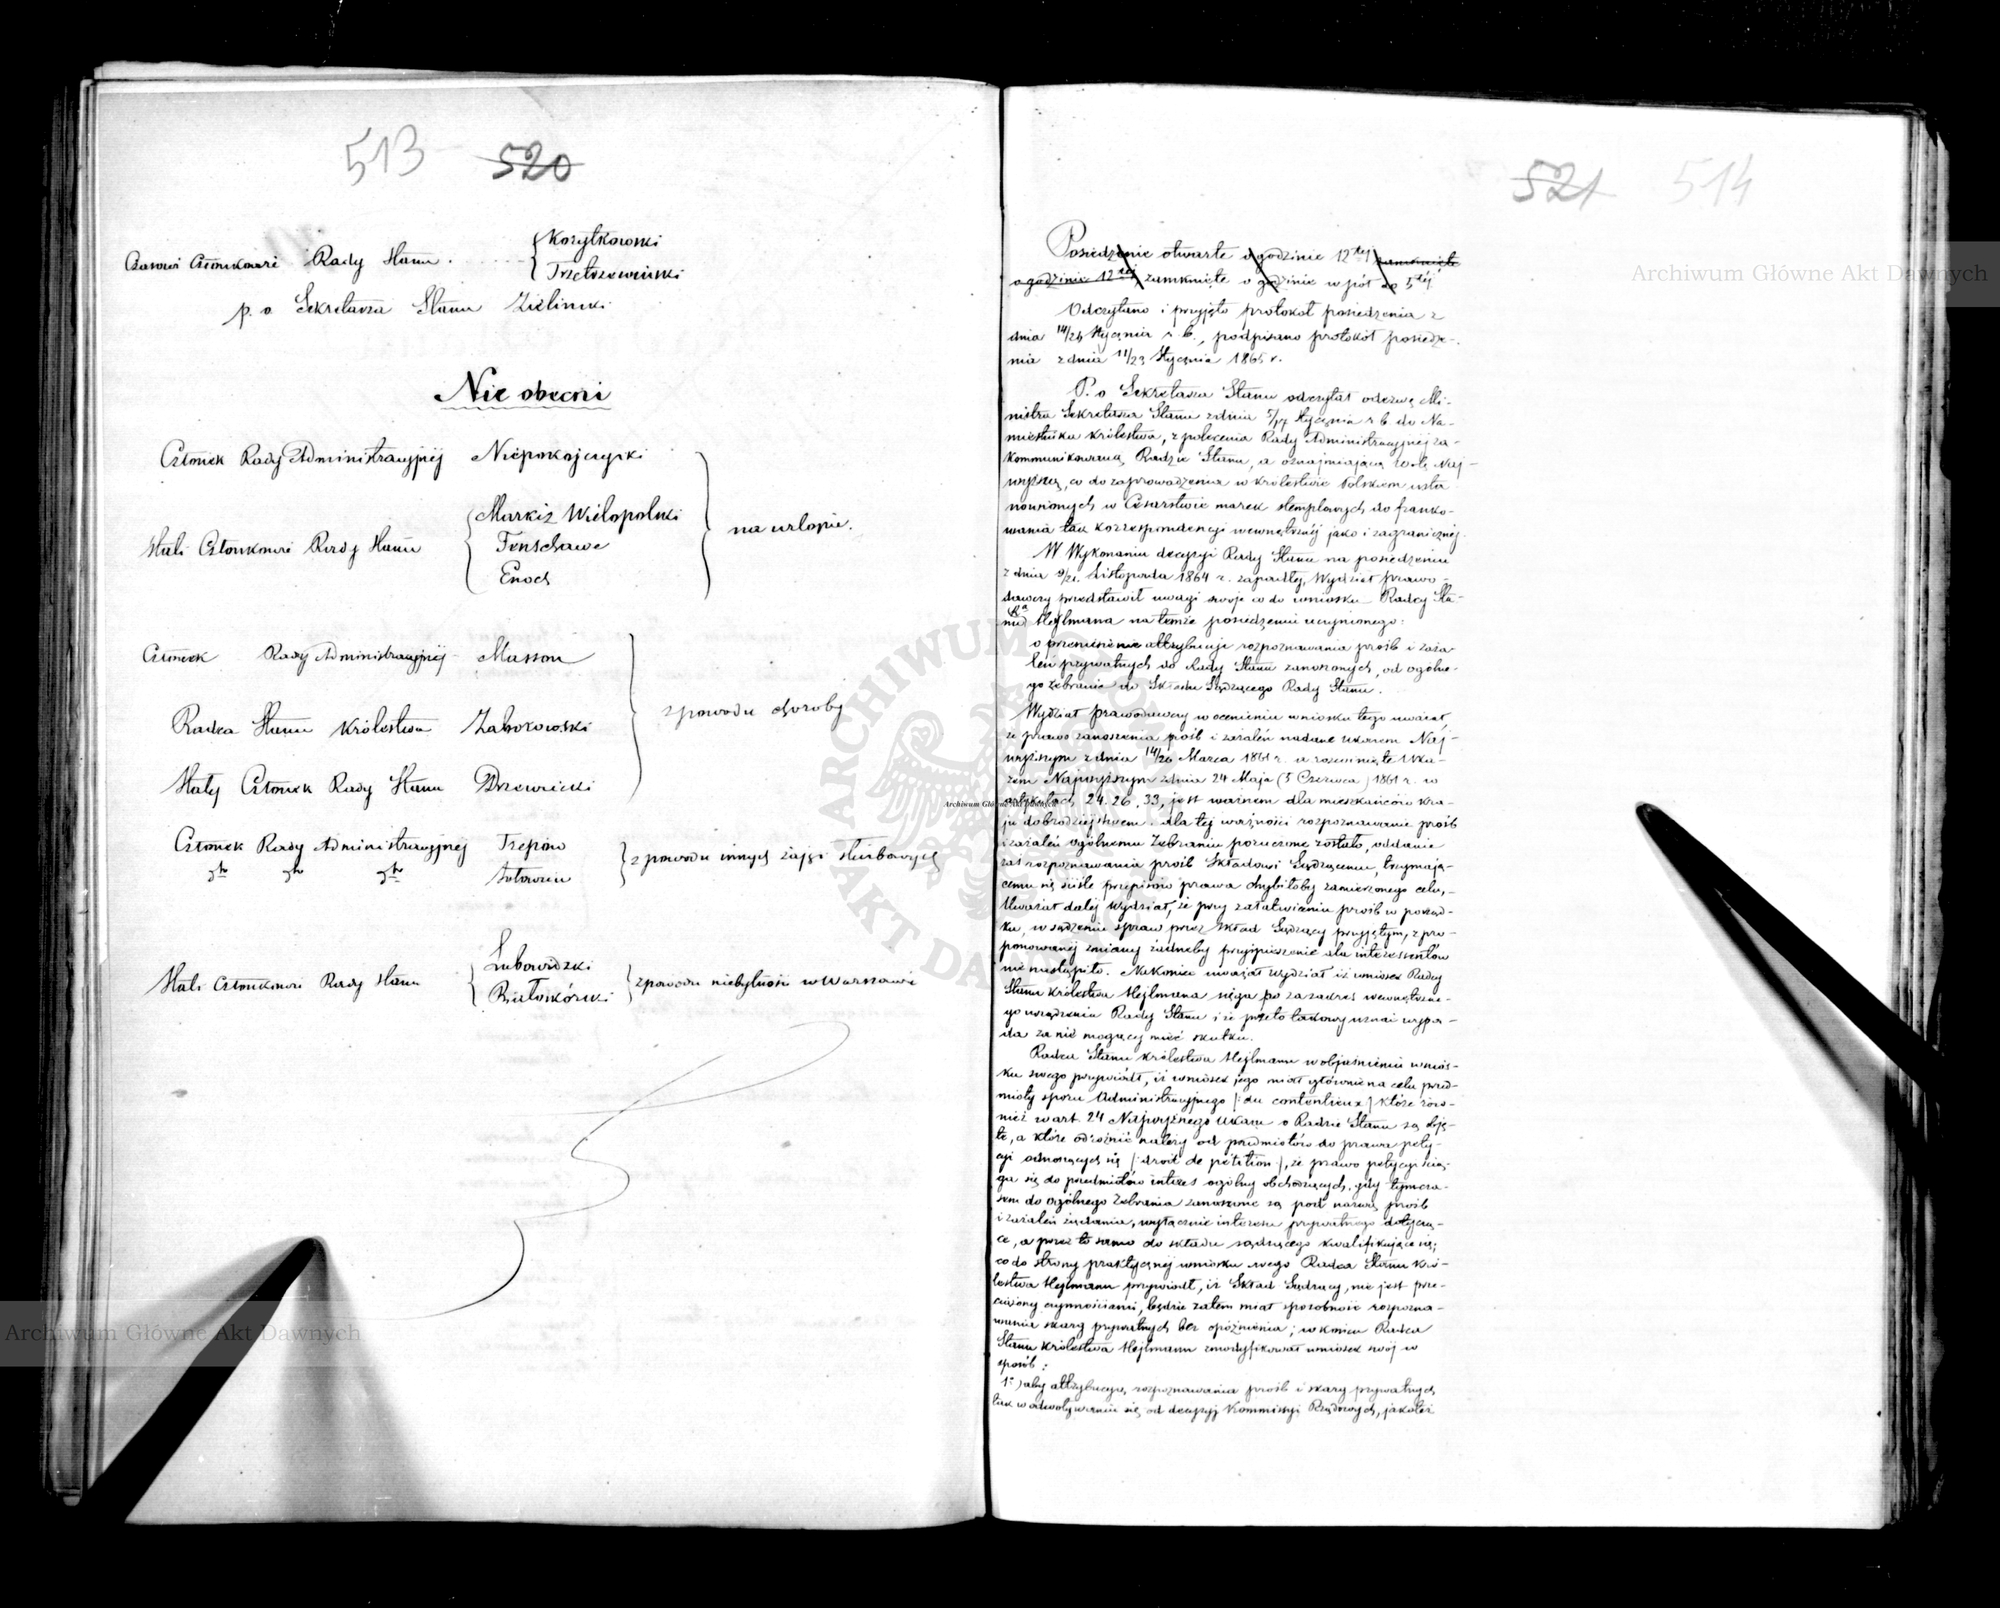 513 520
Czasowi Członkowie Rady Stanu . . . . . Korytkowski
Trzetrzewiński
p. o. Sekretarza Stanu Zieliński
Nie obecni
Członek Rady Administracyjnej Niepokojczycki
Stali Członkowie Rady Stanu Markiz Wielopolski
Tenschawe
Enoch
na urlopie.
Członek Rady Administracyjnej Musson
Radca Stanu Królestwa Zaborowski
z powodu choroby
Stały Członek Rady Stanu Drzewiecki
Członek Rady Administracyjnej Trepow
dto dto dto Sołowiew
z powodu innych zajęć służbowych
Stali Członkowie Rady Stanu Lubowidzki
Białoskórski
z powodu niebytności w Warszawie
521 514
Posiedzenie otwarte o godzinie 12tej zamknięte
o godzinie 12tej zamknięte o godzinie w pół do 5tej
Odczytano i przyjęto protokół posiedzenia z
dnia 14/26 Stycznia r. b., podpisano protokół posiedze-
nia z dnia 11/23 Stycznia 1865 r.
P. o Sekretarza Stanu odczytał odezwę Mi-
nistra Sekretarza Stanu z dnia 5/17 Stycznia r b do Na-
miestnika Królestwa, z polecenia Rady Administracyjnej za-
kommunikowaną Radzie Stanu, a oznajmiającą wolę Naj-
wyższą, co do zaprowadzenia w Królestwie Polskiem usta-
nowionych w Cesarstwie marek stemplowych do franko-
wania tak korrespondencyi wewnętrznej jako i zagranicznej.
W Wykonaniu decyzyi Rady Stanu na posiedzeniu
z dnia 9/21 Listopada 1864 r. zapadłej, Wydział Prawo-
dawczy przedstawił uwagi swoje co do wniosku Radcy Sta-
nu Kr Hejlmana na temże posiedzeniu uczynionego:
o przeniesienie attrybucyi rozpoznawania próśb i zaża-
leń prywatnych do Rady Stanu zanoszonych, od ogólne-
go Zebrania do Składu Sądzącego Rady Stanu.
Wydział Prawodawczy w ocenieniu wniosku tego uważał,
że prawo zanoszenia próśb i zażaleń nadane Ukazem Naj-
wyższym z dnia 14/26 Marca 1861 r. a rozwinięte Uka-
zem Najwyższym z dnia 24 Maja (5 Czerwca) 1861 r. w
artykułach 24. 26. 33, jest ważnem dla mieszkańców kra-
ju dobrodziejstwem. dla tej ważności rozpoznawanie próśb
i zażaleń ogólnemu Zebraniu poruczone zostało, oddanie
zaś rozpoznawania próśb Składowi Sądzącemu, trzymają-
cemu się ściśle przepisów prawa chybiłoby zamierzonego celu,
Uważał dalej Wydział, że przy załatwieniu próśb w porząd-
ku, w sądzeniu spraw przez Skład Sądzący przyjętym, z pro-
ponowanej zmiany żadneby przyspieszenie dla interesentów
nie nastąpiło. Nakoniec uważał Wydział iż wniosek Radcy
Stanu Królestwa Hejlmana sięga po za zakres wewnętrzne-
go urządzenia Rady Stanu i że przeto takowy uznać wypa-
da za nie mogący mieć skutku.
Radca Stanu Królestwa Hejlmann w objaśnieniu wnios-
ku swego przywiódł, iż wniosek jego miał głównie na celu przed-
mioty sporu Administracyjnego /: du contentieux :/ które rów-
nież w art. 24 Najwyższego Ukazu o Radzie Stanu są obję-
te, a które odróżnić należy od przedmiotów do prawa pety-
cyi odnoszących się /: droit de pétition :/, że prawo petycyi ścią-
ga się do przedmiotów interes ogólny obchodzących, gdy tymcza-
sem do ogólnego Zebrania zanoszone są pod nazwą próśb
i zażaleń żądania, wyłącznie interesu prywatnego dotyczą-
ce, a przez to samo do składu sądzącego kwalifikujące się;
co do strony praktycznej wniosku swego Radca Stanu Kró-
lestwa Hejlmann przywiódł, iż Skład Sądzący, nie jest prze-
ciążony czynnościami, będzie zatem miał sposobność rozpozna-
wania skarg prywatnych bez opóźnienia; w końcu Radca
Stanu Królestwa Hejlmann zmodyfikował wniosek swój w
sposób:
1o) aby attrybucya, rozpoznawania próśb i skarg prywatnych
tak w odwoływaniu się od decyzyj Kommissyi Rządowych, jakoteż
Archiwum Główne Akt Dawnych
Archiwum Główne Akt Dawnych
Archiwum Główne Akt Dawnych
ARCHIWUM GŁÓWNE AKT DAWNYCH